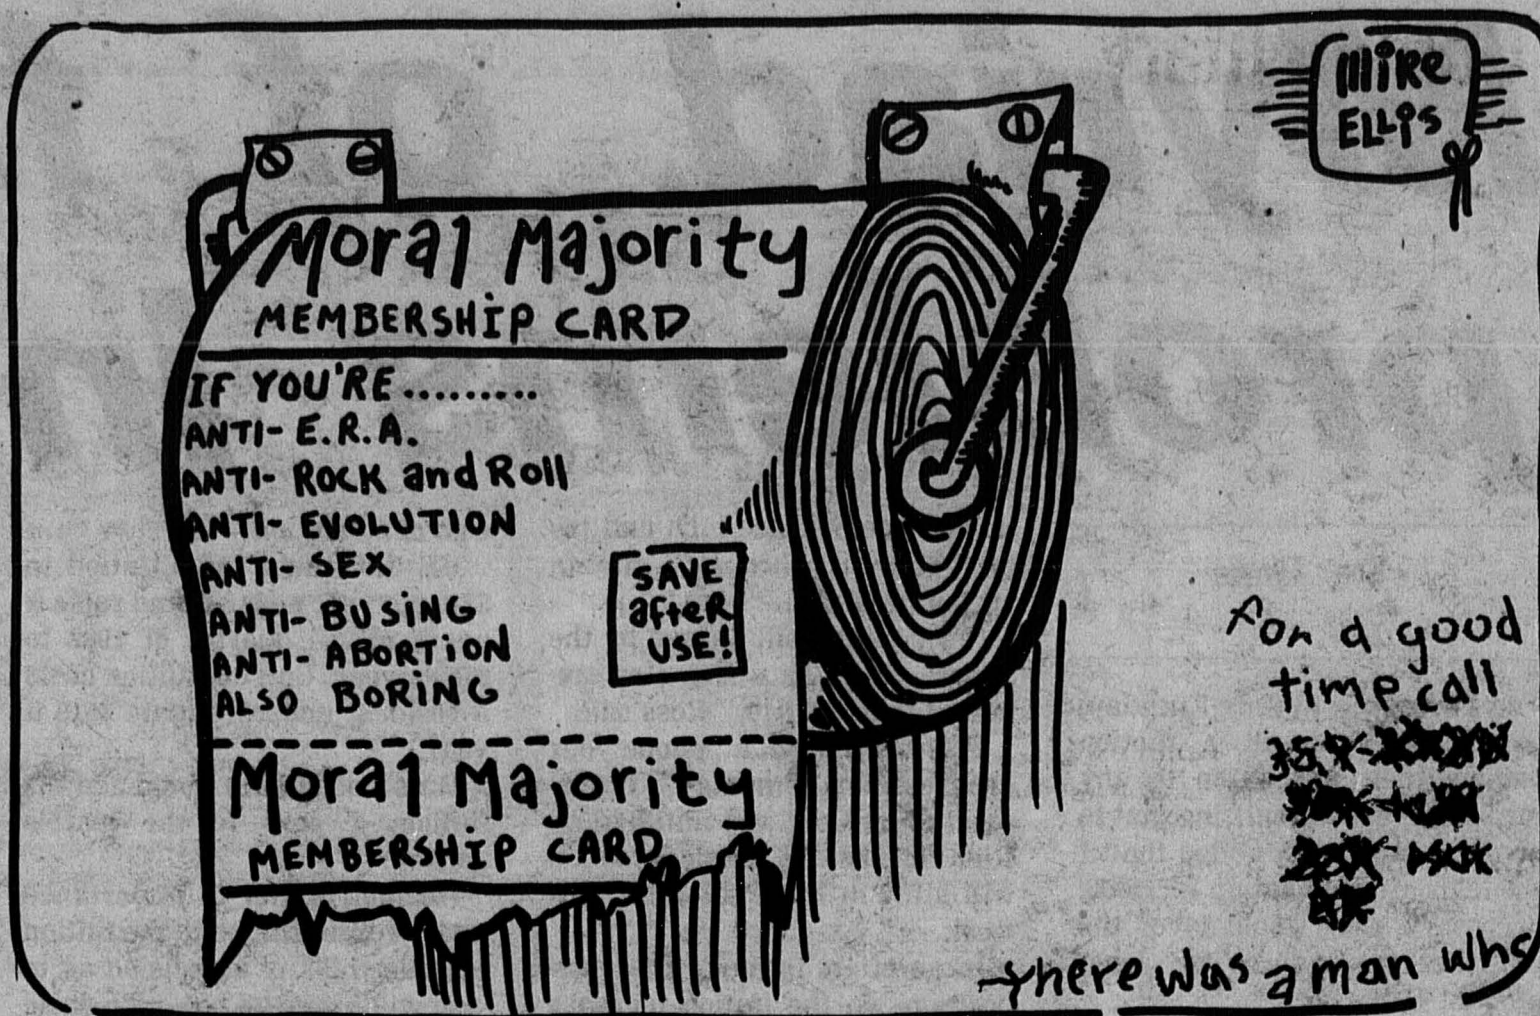 MIKE
ELLIS
Moral Majority
MEMBERSHIP CARD
IF YOU'RE.........
ANTI- E.R.A.
ANTI- ROCK and Roll
ANTI- EVOLUTION
ANTI- SEX
ANTI- BUSING
ANTI- ABORTION
ALSO BORING
SAVE
after
USE!
Moral Majority
MEMBERSHIP CARD
For a good
time call
there was a man who